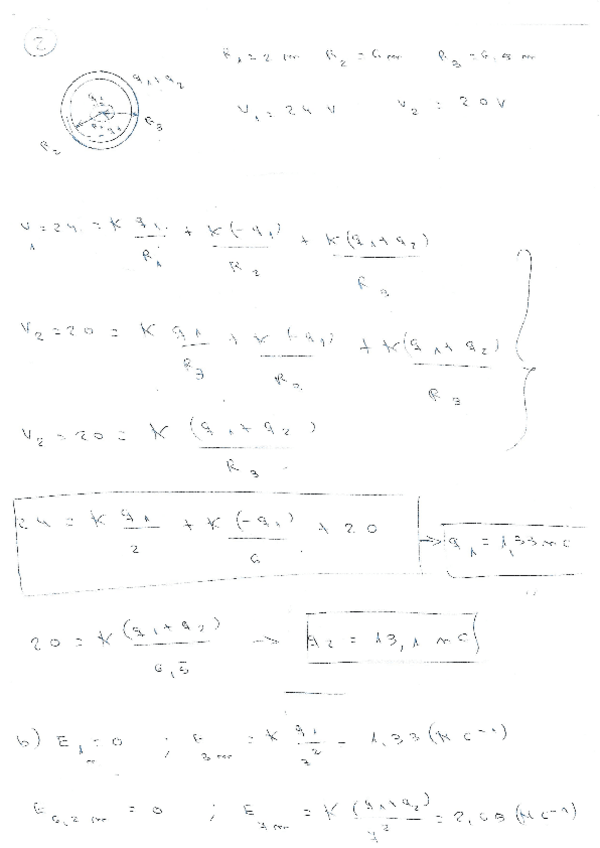 2
R₁ = 2 m R₂ = 6 m R₃ = 6,5 m
q₁+q₂
V₁ = 24 V V₂ = 20 V
R₃
R₂
V₁ = 24 = K q₁/R₁ + K(-q₁)/R₂ + K(q₁+q₂)/R₃
V₂ = 20 = K q₁/R₃ + K(-q₁)/R₂ + K(q₁+q₂)/R₃
V₂ = 20 = K (q₁+q₂)/R₃
24 = K q₁/2 + K (-q₁)/6 + 20 → q₁ = 1,33 nC
20 = K (q₁+q₂)/6,5 → q₂ = 13,1 nC
b) E₁ₘ = 0 ; E₃ₘ = K q₁/3² = 1,33 (N C⁻¹)
E₆,₂ₘ = 0 ; E₇ₘ = K (q₁+q₂)/7² = 2,65 (N C⁻¹)